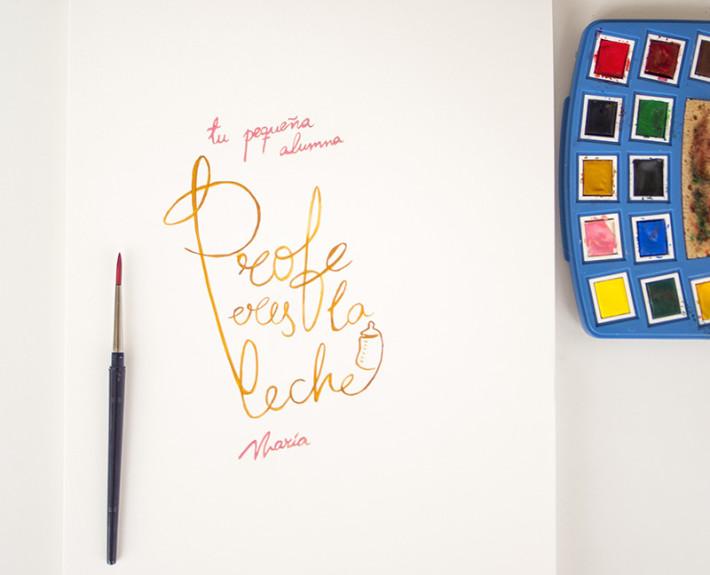 tu pequeña
alumna
Profe
eres la
leche
María